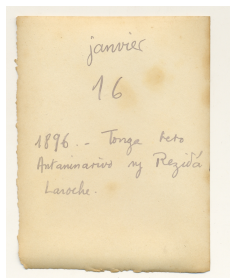 janvier
16
1896. - Tonga teto
Antaninarivo ny Rezidá
Laroche.